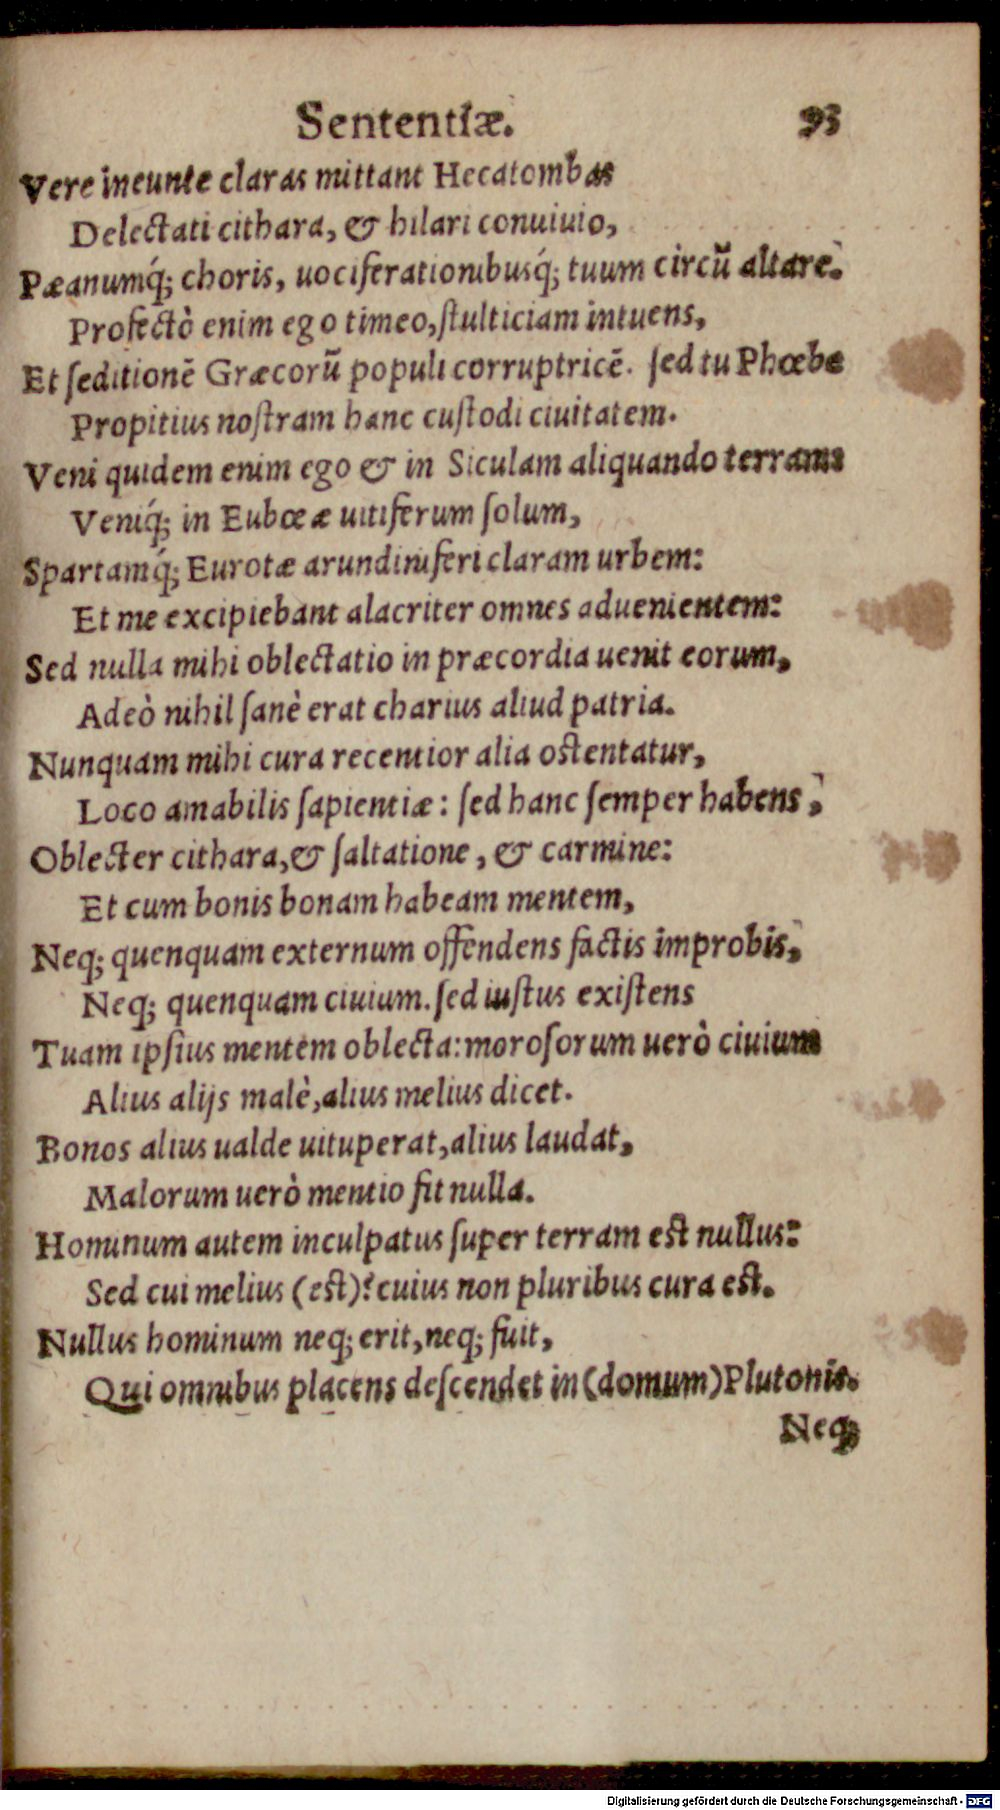 Sententiæ. 93
Vere ineunte claras mittant Hecatombas
Delectati cithara, & hilari conuiuio,
Pæanumq́; choris, uociferationibusq́; tuum circũ altare.
Profectò enim ego timeo, ſtulticiam intuens,
Et ſeditionẽ Græcorũ populi corruptricẽ. ſed tu Phœbe
Propitius noſtram hanc cuſtodi ciuitatem.
Veni quidem enim ego & in Siculam aliquando terram:
Veniq́; in Eubœæ uitiferum ſolum,
Spartamq́; Eurotæ arundiniferi claram urbem:
Et me excipiebant alacriter omnes aduenientem:
Sed nulla mihi oblectatio in præcordia uenit eorum,
Adeò nihil ſanè erat charius aliud patria.
Nunquam mihi cura recentior alia oſtentatur,
Loco amabilis ſapientiæ: ſed hanc ſemper habens,
Oblecter cithara, & ſaltatione, & carmine:
Et cum bonis bonam habeam mentem,
Neq; quenquam externum offendens factis improbis,
Neq; quenquam ciuium. ſed iuſtus exiſtens
Tuam ipſius mentem oblecta: moroſorum uerò ciuium
Alius alijs malè, alius melius dicet.
Bonos alius ualde uituperat, alius laudat,
Malorum uerò mentio fit nulla.
Hominum autem inculpatus ſuper terram eſt nullus:
Sed cui melius (eſt)? cuius non pluribus cura eſt.
Nullus hominum neq; erit, neq; fuit,
Qui omnibus placens deſcendet in (domum) Plutonis.
Neq;
Digitalisierung gefördert durch die Deutsche Forschungsgemeinschaft - DFG